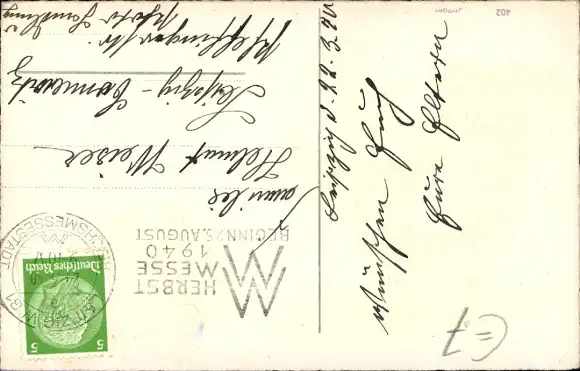 402
Leipzig d. 22.3.40
wünschen Euch
Eure Eltern
LEIPZIG W 31
REICHSMESSESTADT
HERBST
MESSE
1940
BEGINN 25. AUGUST
Deutsches Reich
5 5
Familie
Helmut Weiser
Leipzig-
=7